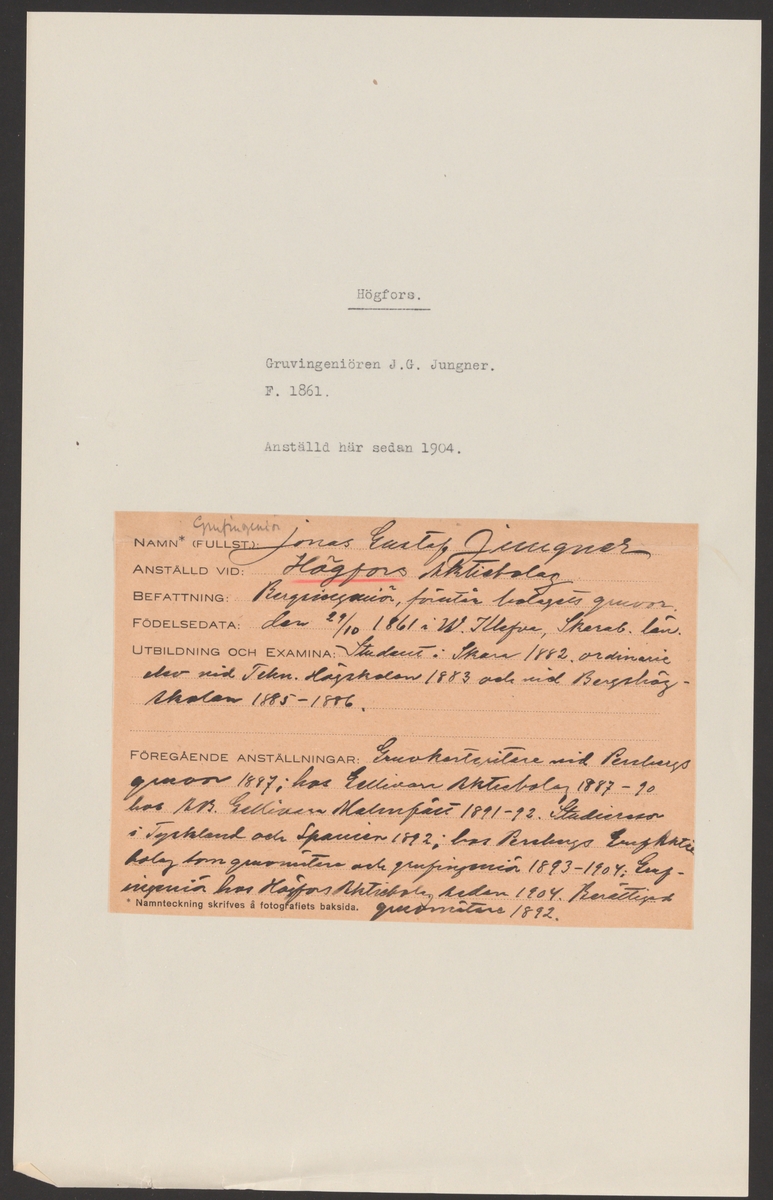 Högfors.
Gruvingeniören J.G. Jungner.
F. 1861.
Anställd här sedan 1904.
Grufingeniör
NAMN* (FULLST.): Jonas Gustaf Jungner
ANSTÄLLD VID: Högfors Aktiebolag
BEFATTNING: Bergsingeniör, förestår bolagets gruvor.
FÖDELSEDATA: den 29/10 1861 i W. Klefva, Skarab. län.
UTBILDNING OCH EXAMINA: Student i Skara 1882. ordinarie
elev vid Tekn. Högskolan 1883 och vid Bergshög-
skolan 1885-1886.
FÖREGÅENDE ANSTÄLLNINGAR: Gruvkartritare vid Persbergs
gruvor 1887; hos Gellivara Aktiebolag 1887-90
hos A.B. Gellivara Malmfält 1891-92. Studieresor
i Tyskland och Spanien 1892; hos Persbergs Gruf Aktie
bolag som gruvmätare och grufingeniör 1893-1904; Gruf-
ingeniör hos Högfors Aktiebolag sedan 1904. Berättigad
* Namnteckning skrifves å fotografiets baksida. gruvmätare 1892.